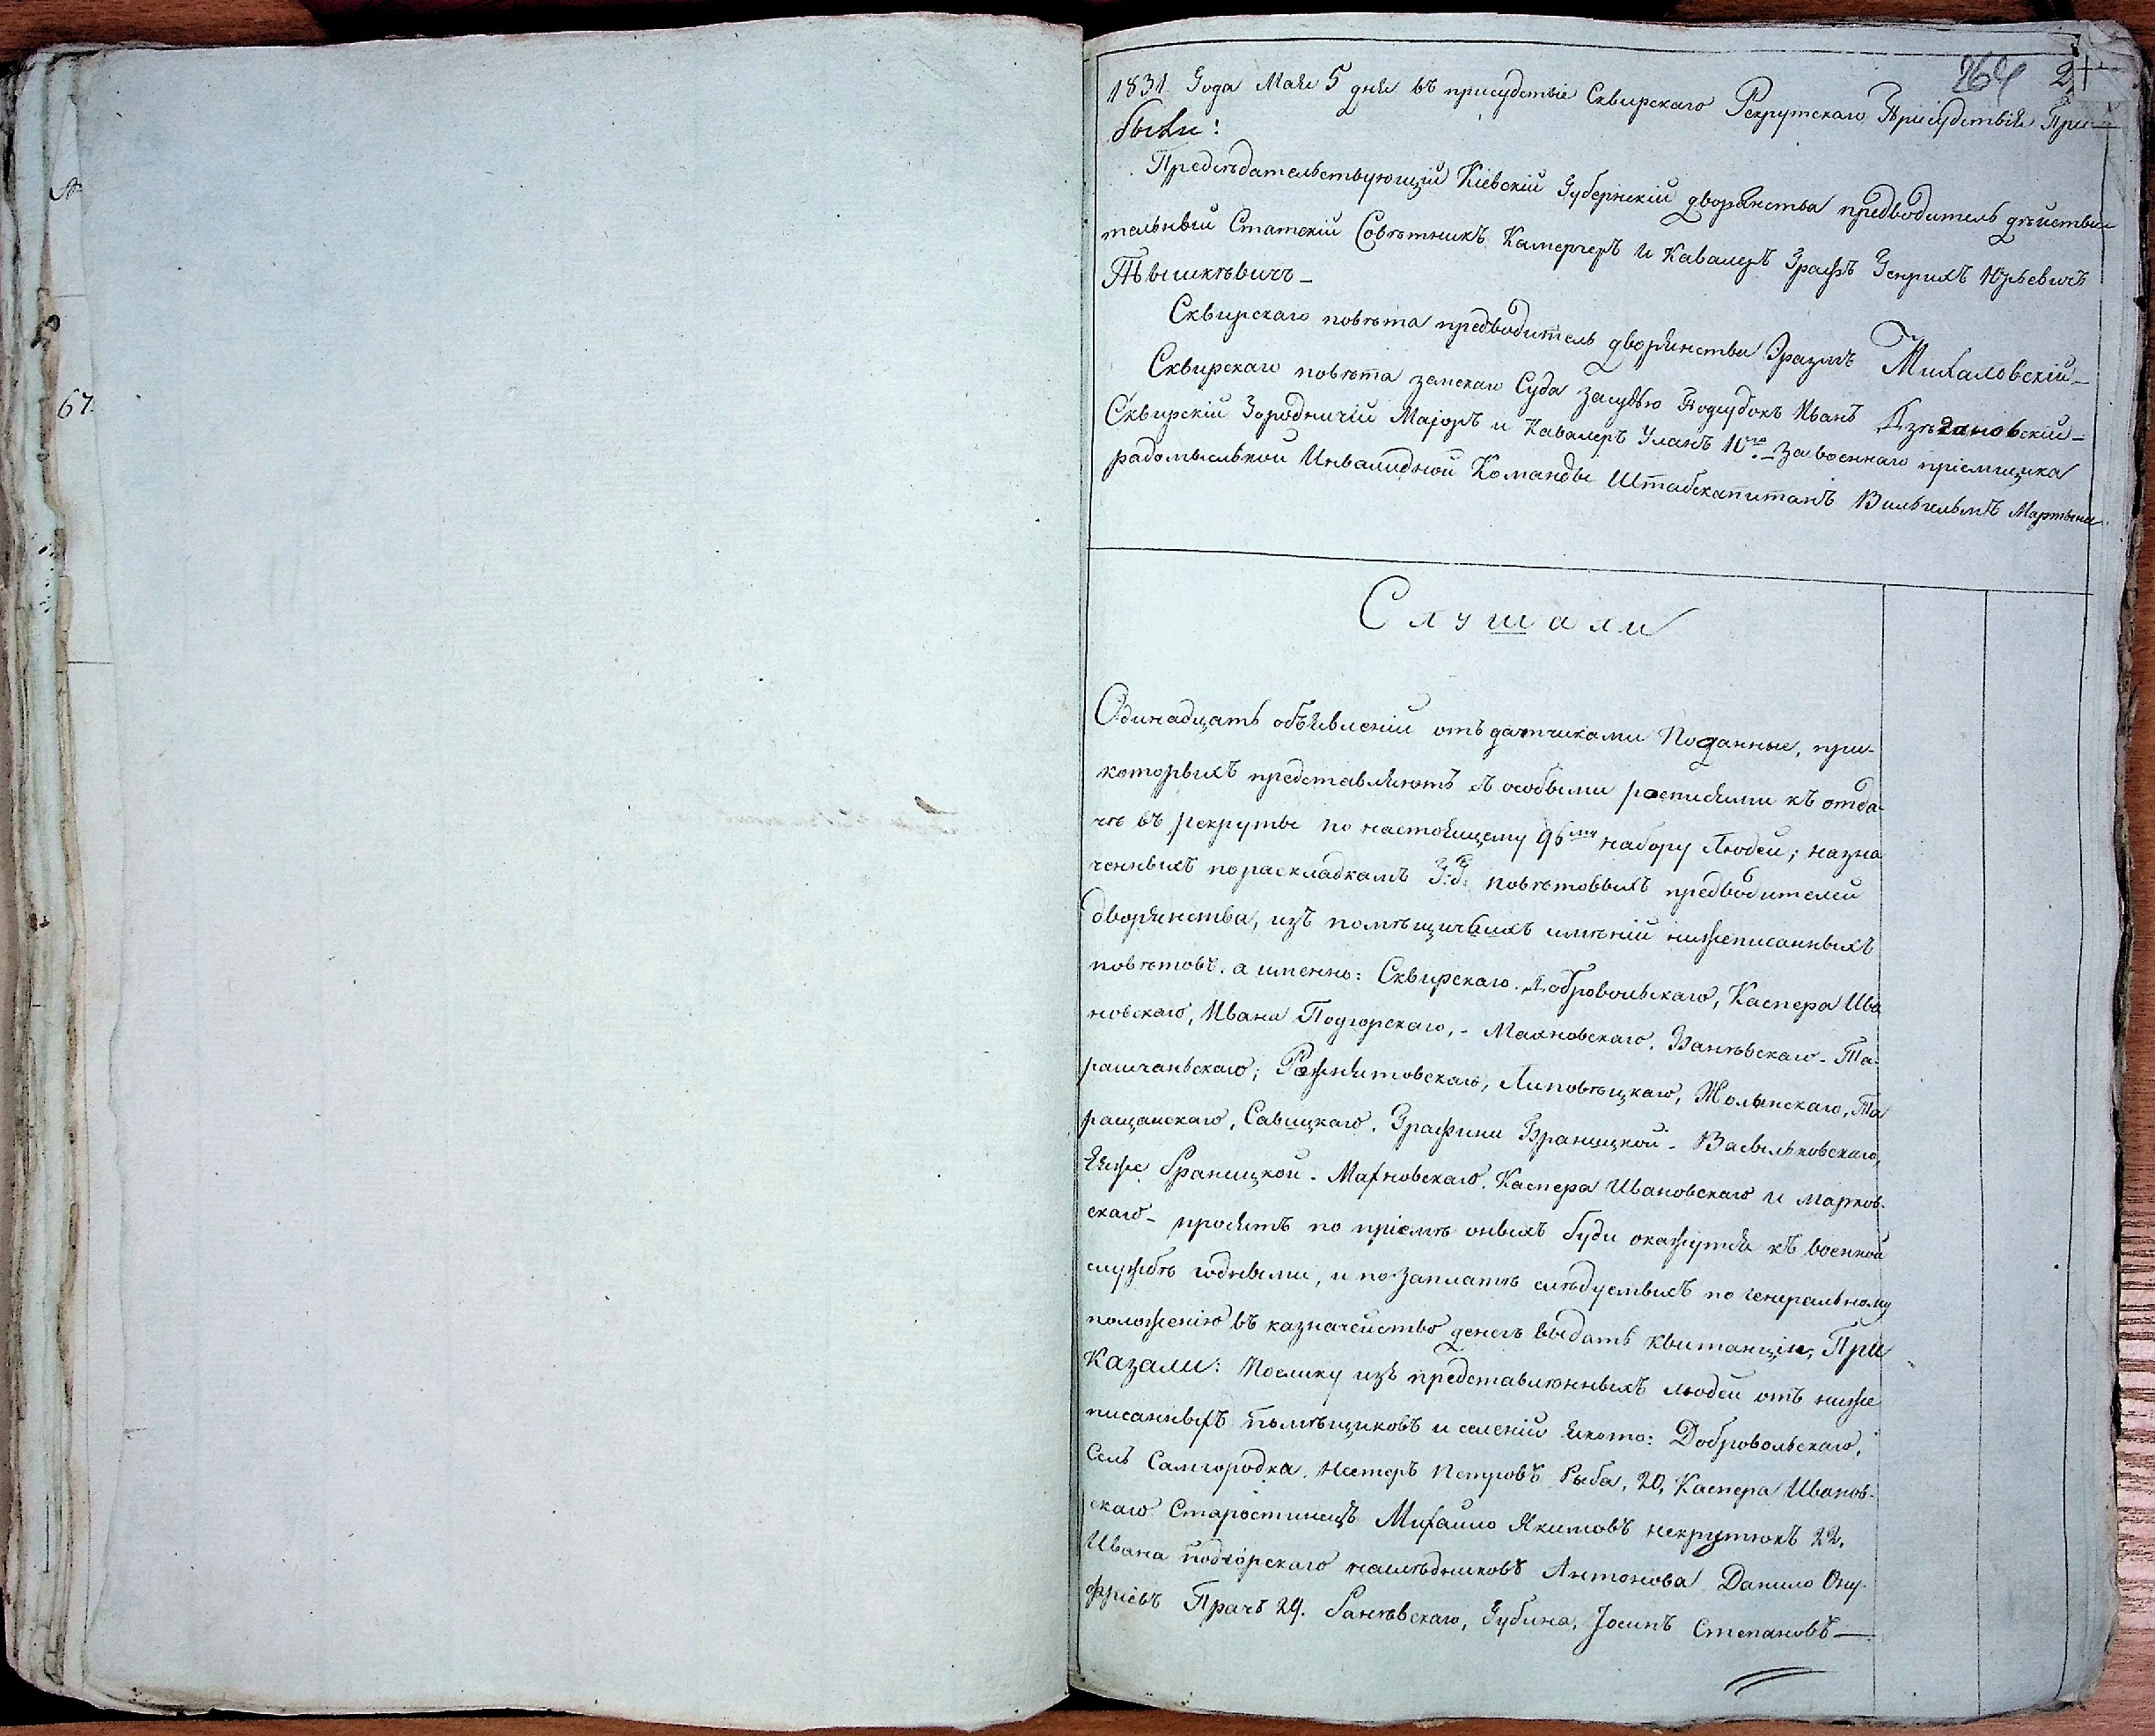 67.
264 2
1831 Года Мая 5 дня въ присудствіе Сквирскаго Рекрутскаго Присудствія При-
были:
Предсѣдательствующій Кіевскій Губернскій дворянства предводитель дѣйстви
тельный Статскій Совѣтникъ Камергеръ и Кавалеръ Графъ Генрихъ Юрьевичъ
Тышкѣвичъ –
Сквирскаго повѣта предводитель дворянства Эразмъ Михаловскій –
Сквирскаго повѣта земскаго Суда засудью Подсудокъ Иванъ
Сквирскій Городничій Маіоръ и Кавалеръ Уланъ За военнаго пріемщика
радомысльской Инвалидной Команды Штабскапитанъ Вильгельмъ
Слушали
Одинадцать объявленій отъдатчиками Поданные, при-
которыхъ представляютъ съ особыми росписями къ отда
чѣ въ рекруты по настоящему 96му набору Людей; назна
ченныхъ пораскладкамъ Г:Г: повѣтовыхъ предводителей
дворянства, изъ помѣщичьихъ имѣній нижеписанныхъ
повѣтовъ. а именно: Сквирскаго. Добровольскаго, Каспера Ива
новскаго, Ивана Подгорскаго, – Махновскаго. Ванѣвскаго – Та-
ращанскаго; Липовѣцкаго, Та
ращанскаго, Савицкаго. Графини Браницкой – Васильковскаго,
Еяже Браницкой – Махновскаго. Каспера Ивановскаго и Марков-
скаго – просятъ по пріемѣ оныхъ буди окажутся къ военной
службѣ годными, и по заплатѣ слѣдуемыхъ по генеральному
положенію въ казначейство денегъ выдать квитанціи, При
Казали: Поелику изъ представлюнныхъ людей отъ ниже
писанныхъ помѣщиковъ и селеній якото: Добровольскаго,
Селъ Самгородка. Нестеръ Петровъ Рыба, 20, Каспера Иванов-
скаго Старостинецъ Михайло Якимовъ некрутюкъ 22.
Ивана подгорскаго наслѣдниковъ Антонова Данило Ону-
фріевъ Прачъ 29. Ванѣвскаго, Губина, Іосипъ Степановъ —